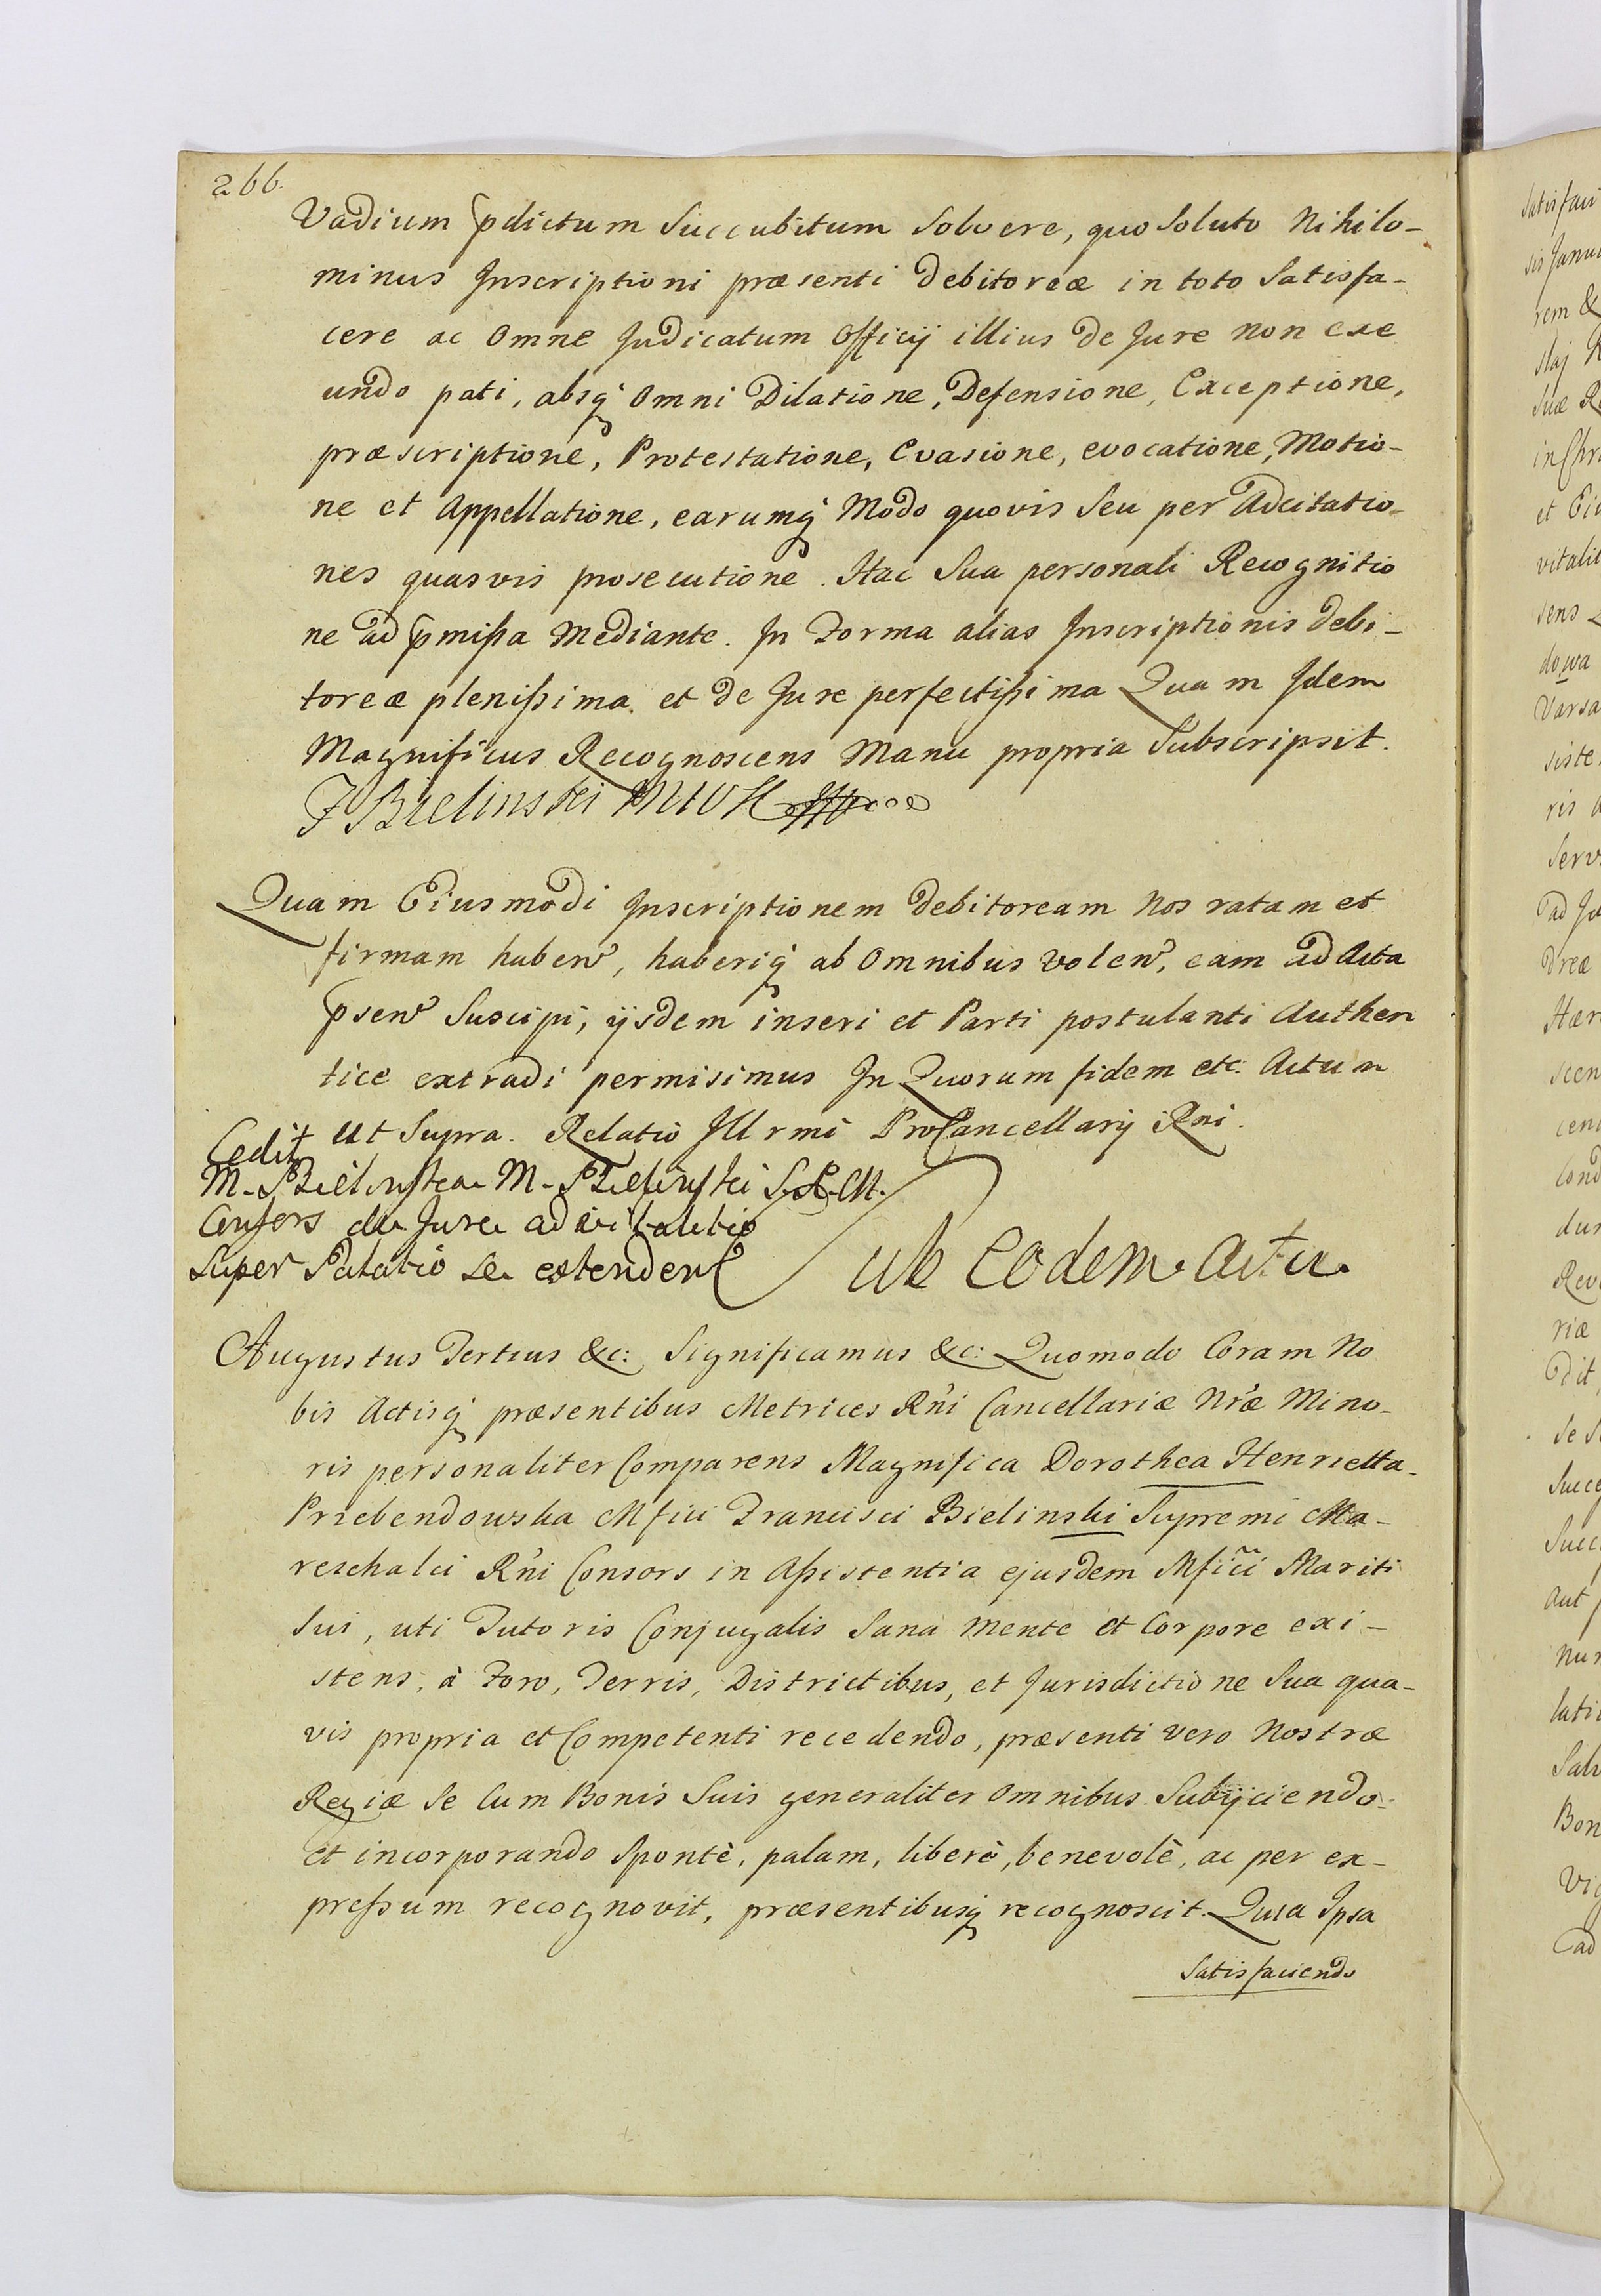 266.
Vadium pdictum Succubitum Solvere, quo Soluto Nihilo-
minus Inscriptioni præsenti Debitoreæ in toto Satisfa-
cere ac Omne Judicatum Officij illius de Jure non exe
undo pati, absq Omni Dilatione, Defensione, Exceptione,
præscriptione, Protestatione, Evasione, evocatione, Motio-
ne et Appellatione, earumq Modo quovis Seu per Adcitatio-
nes quasvis prosecutione. Hac Sua personali Recognitio
ne ad pmißa Mediante. In Forma alias Inscriptionis Debi-
toreæ plenißima et de Jure perfectißima Quam Idem
Magnificus Recognoscens Manu propria Subscripsit.
F Bielinski MWK
Quam Eiusmodi Inscriptionem Debitoream Nos ratam et
firmam haben, haberiq ab Omnibus Volen, eam ad Acta
psen Suscipi, ijsdem inseri et Parti postulanti Authen
tice extradi permisimus In Quorum fidem etc. Actum
ut Supra. Relatio Illrmi ProCancellarij Rni.
Cedit
M. Bielinska M. Bielinski S. R. M.
Consors de Jure advitalitio
Super Palatio se extenden
Ub Eodem Actu
Augustus Tertius &c: Significamus &c: Quomodo Coram No
bis Actisq præsentibus Metrices Rñi Cancellariæ Nræ Mino-
ris personaliter Comparens Magnifica Dorothea Henrietta
Przebendowska Mfici Francisci Bielinski Supremi Ma-
reschalci Rñi Consors in Aßistentia ejusdem Mficĩ Mariti
Sui, uti Tutoris Conjugalis Sana Mente et Corpore exi-
stens, à Foro, Terris, Districtibus, et Jurisdictione Sua qua-
vis propria et Competenti recedendo, præsenti vero Nostræ
Regiæ Se Cum Bonis Suis generaliter Omnibus Subijciendo
et incorporando Spontè, palam, liberè, benevolè, ac per ex-
preßum recognovit, præsentibusq recognoscit. Quia Ipsa
Satisfaciendo